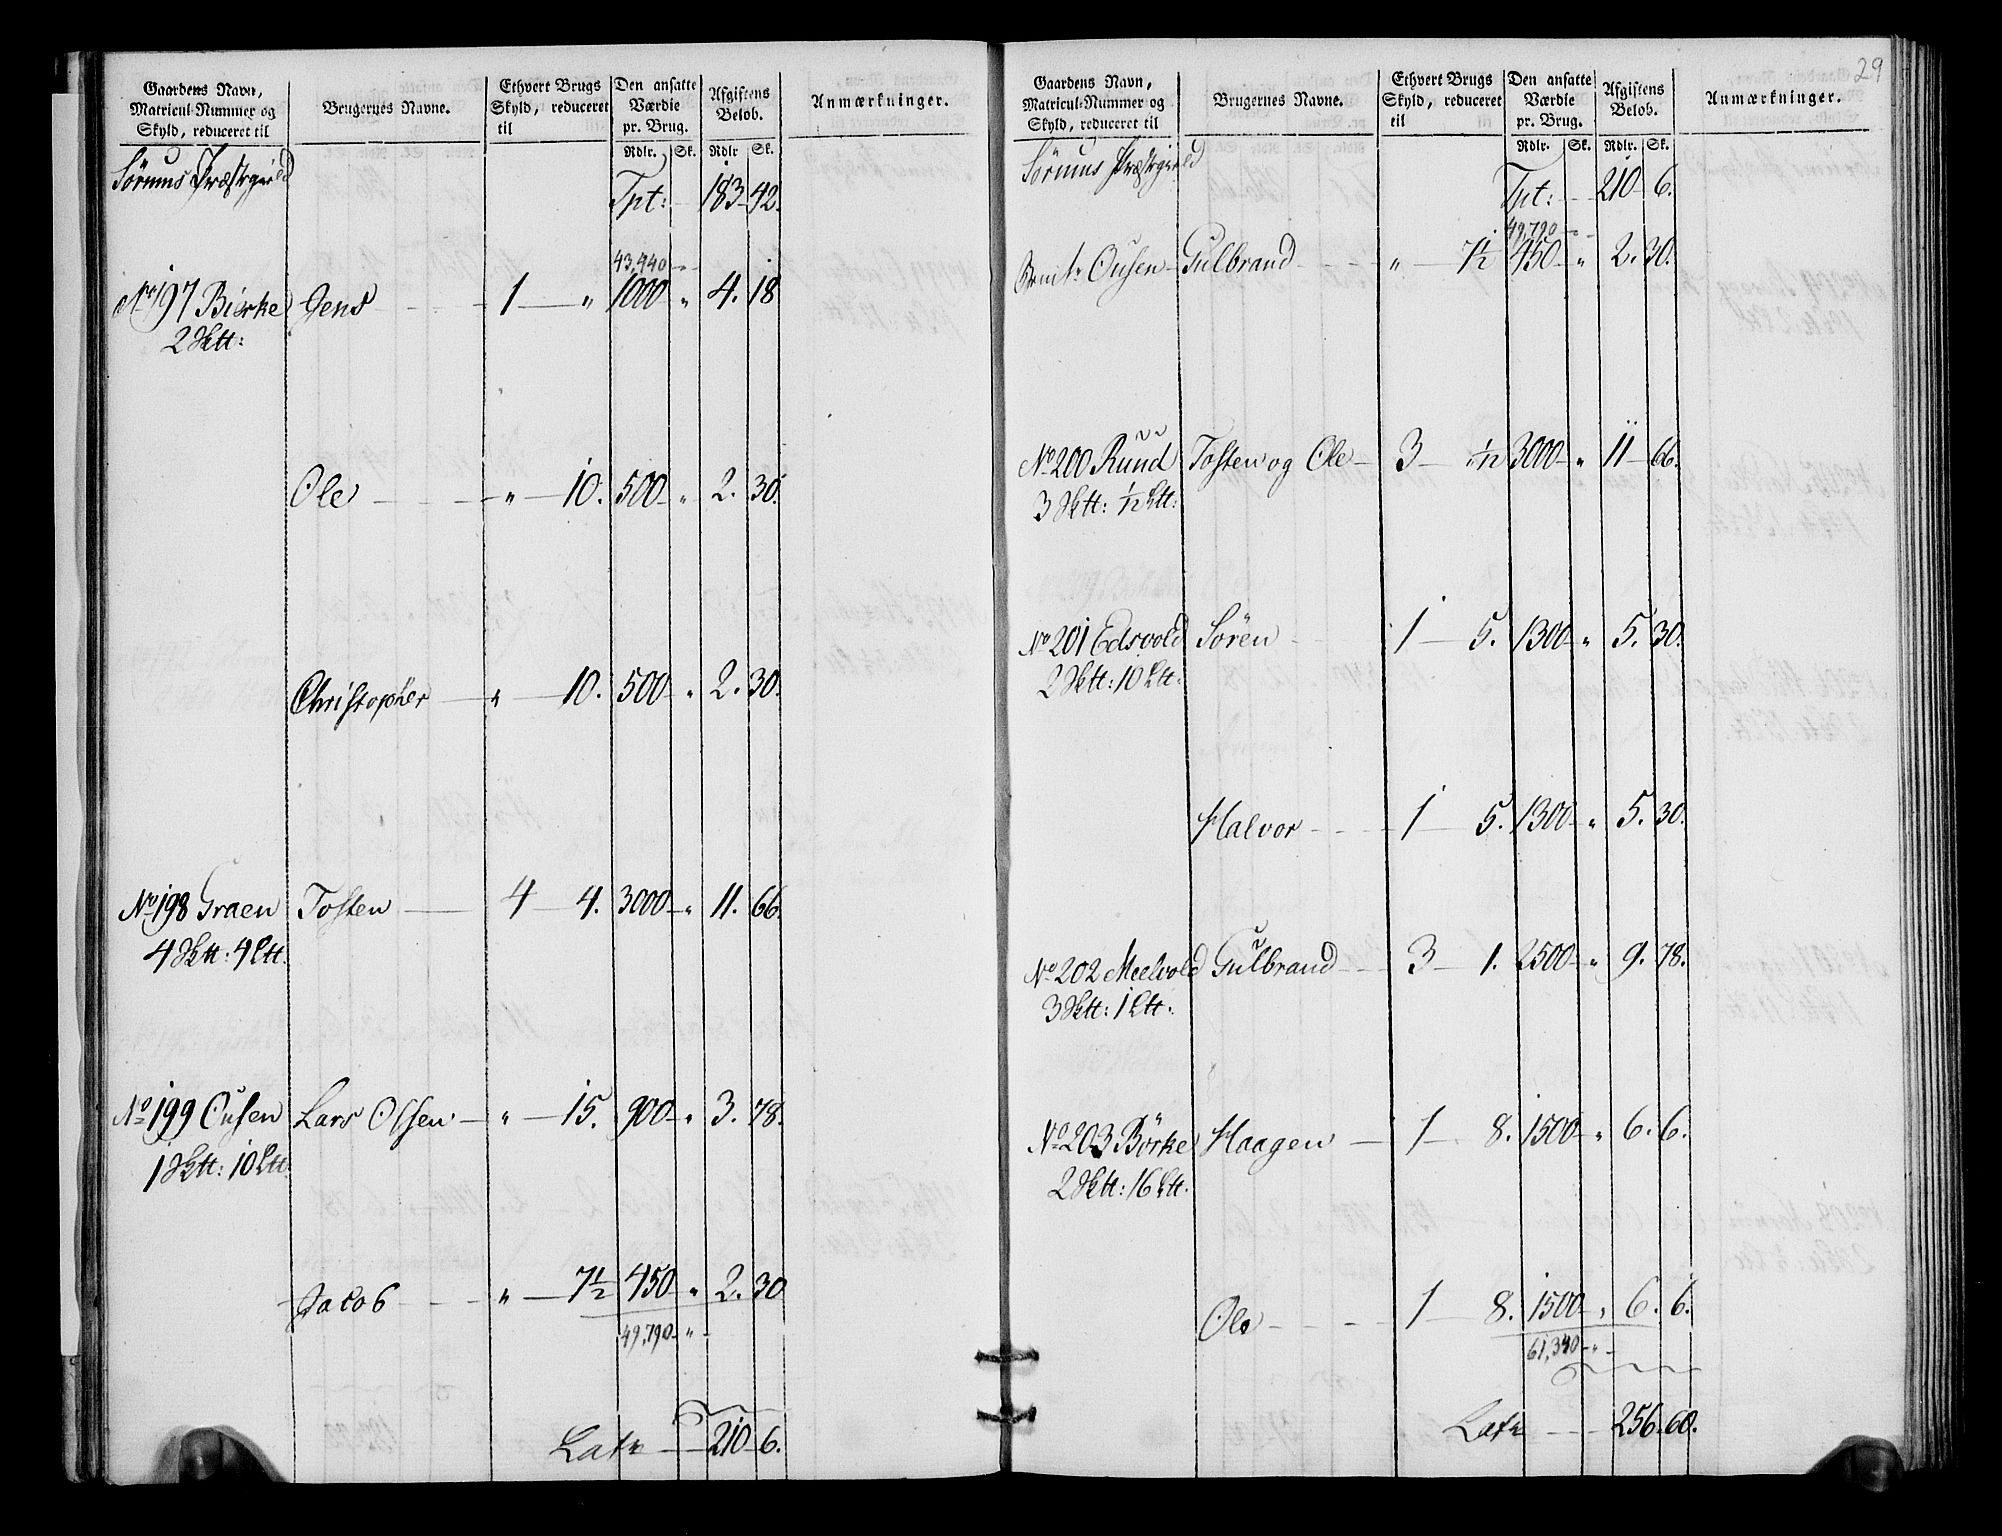 Gaardens Navn, Matricul-Nummer og Skyld, reduceret til | Brugernes Navne. | Ethvert Brugs Skyld, reduceret til | Den ansatte Værdie pr. Brug. | Afgiftens Beløb. | Anmærkninger.
Rdlr. Sk. | Rdlr Sk.
Sørums Præstegield
Tpt: 183 42.
43,440 "
No 197 Bierke Jens 1 " 1000 " 4. 18
2 Sktt:
Ole " 10. 500 " 2. 30.
Christopher " 10. 500 " 2. 30.
No 198 Graen Tosten 4 4. 3000 " 11. 66.
4 Sktt: 4 Ltt.
No 199 Ousen Lars Olsen " 15. 900 " 3. 78.
1 Sktt: 10 Ltt.
Jacob " 7½ 450 " 2. 30
49,790 "
Latr 210 6.
29
Gaardens Navn, Matricul-Nummer og Skyld, reduceret til | Brugernes Navne. | Ethvert Brugs Skyld, reduceret til | Den ansatte Værdie pr. Brug. | Afgiftens Beløb. | Anmærkninger.
Rdlr. Sk. | Rdlr. Sk.
Sørums Præstegield
Tpt: 210 6.
49,790 "
Ousen Gulbrand " 7½ 450 " 2. 30.
No 200 Ruud Tosten og Ole 3 ½ 3000 " 11 66.
3 Sktt: ½ Ltt:
No 201 Edsvold Sören 1 5. 1300 " 5. 30.
2 Sktt: 10 Ltt.
Halvor 1 5. 1300 " 5. 30.
No 202 Meelvold Gulbrand 3 1. 2500 " 9. 78.
3 Sktt: 1 Ltt.
No 203 Börke Haagen 1 8. 1500 " 6. 6.
2 Sktt: 16 Ltt.
Ole 1 8. 1500 " 6. 6.
61,340 "
Latr 256. 60.